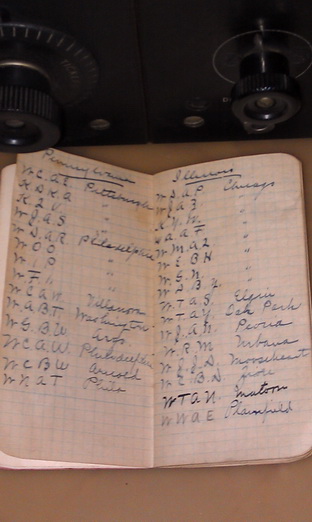 Pennsylvania
W.C.A.E. Pittsburgh
K D K A "
K Q V "
W J A S "
W D A R Philadelphia
W O O "
W I P "
W F I "
W C A N. Villanova
W A B T Washington
W S B U
W C A U. Philadelphia
W C B W Arnold
W N A T Phila
Illinois
W J A P Chicago
W J A Z "
K Y W. "
W A A F "
W M A Q "
W E B H "
W E N. "
W D B Y. "
W T A S. Elgin
W T A Y. Oak Park
W J A N. Peoria
W R M Urbana
W J J D. Mooseheart
W C B D. Zion
W T A N. Matoon
W W A E Plainfield